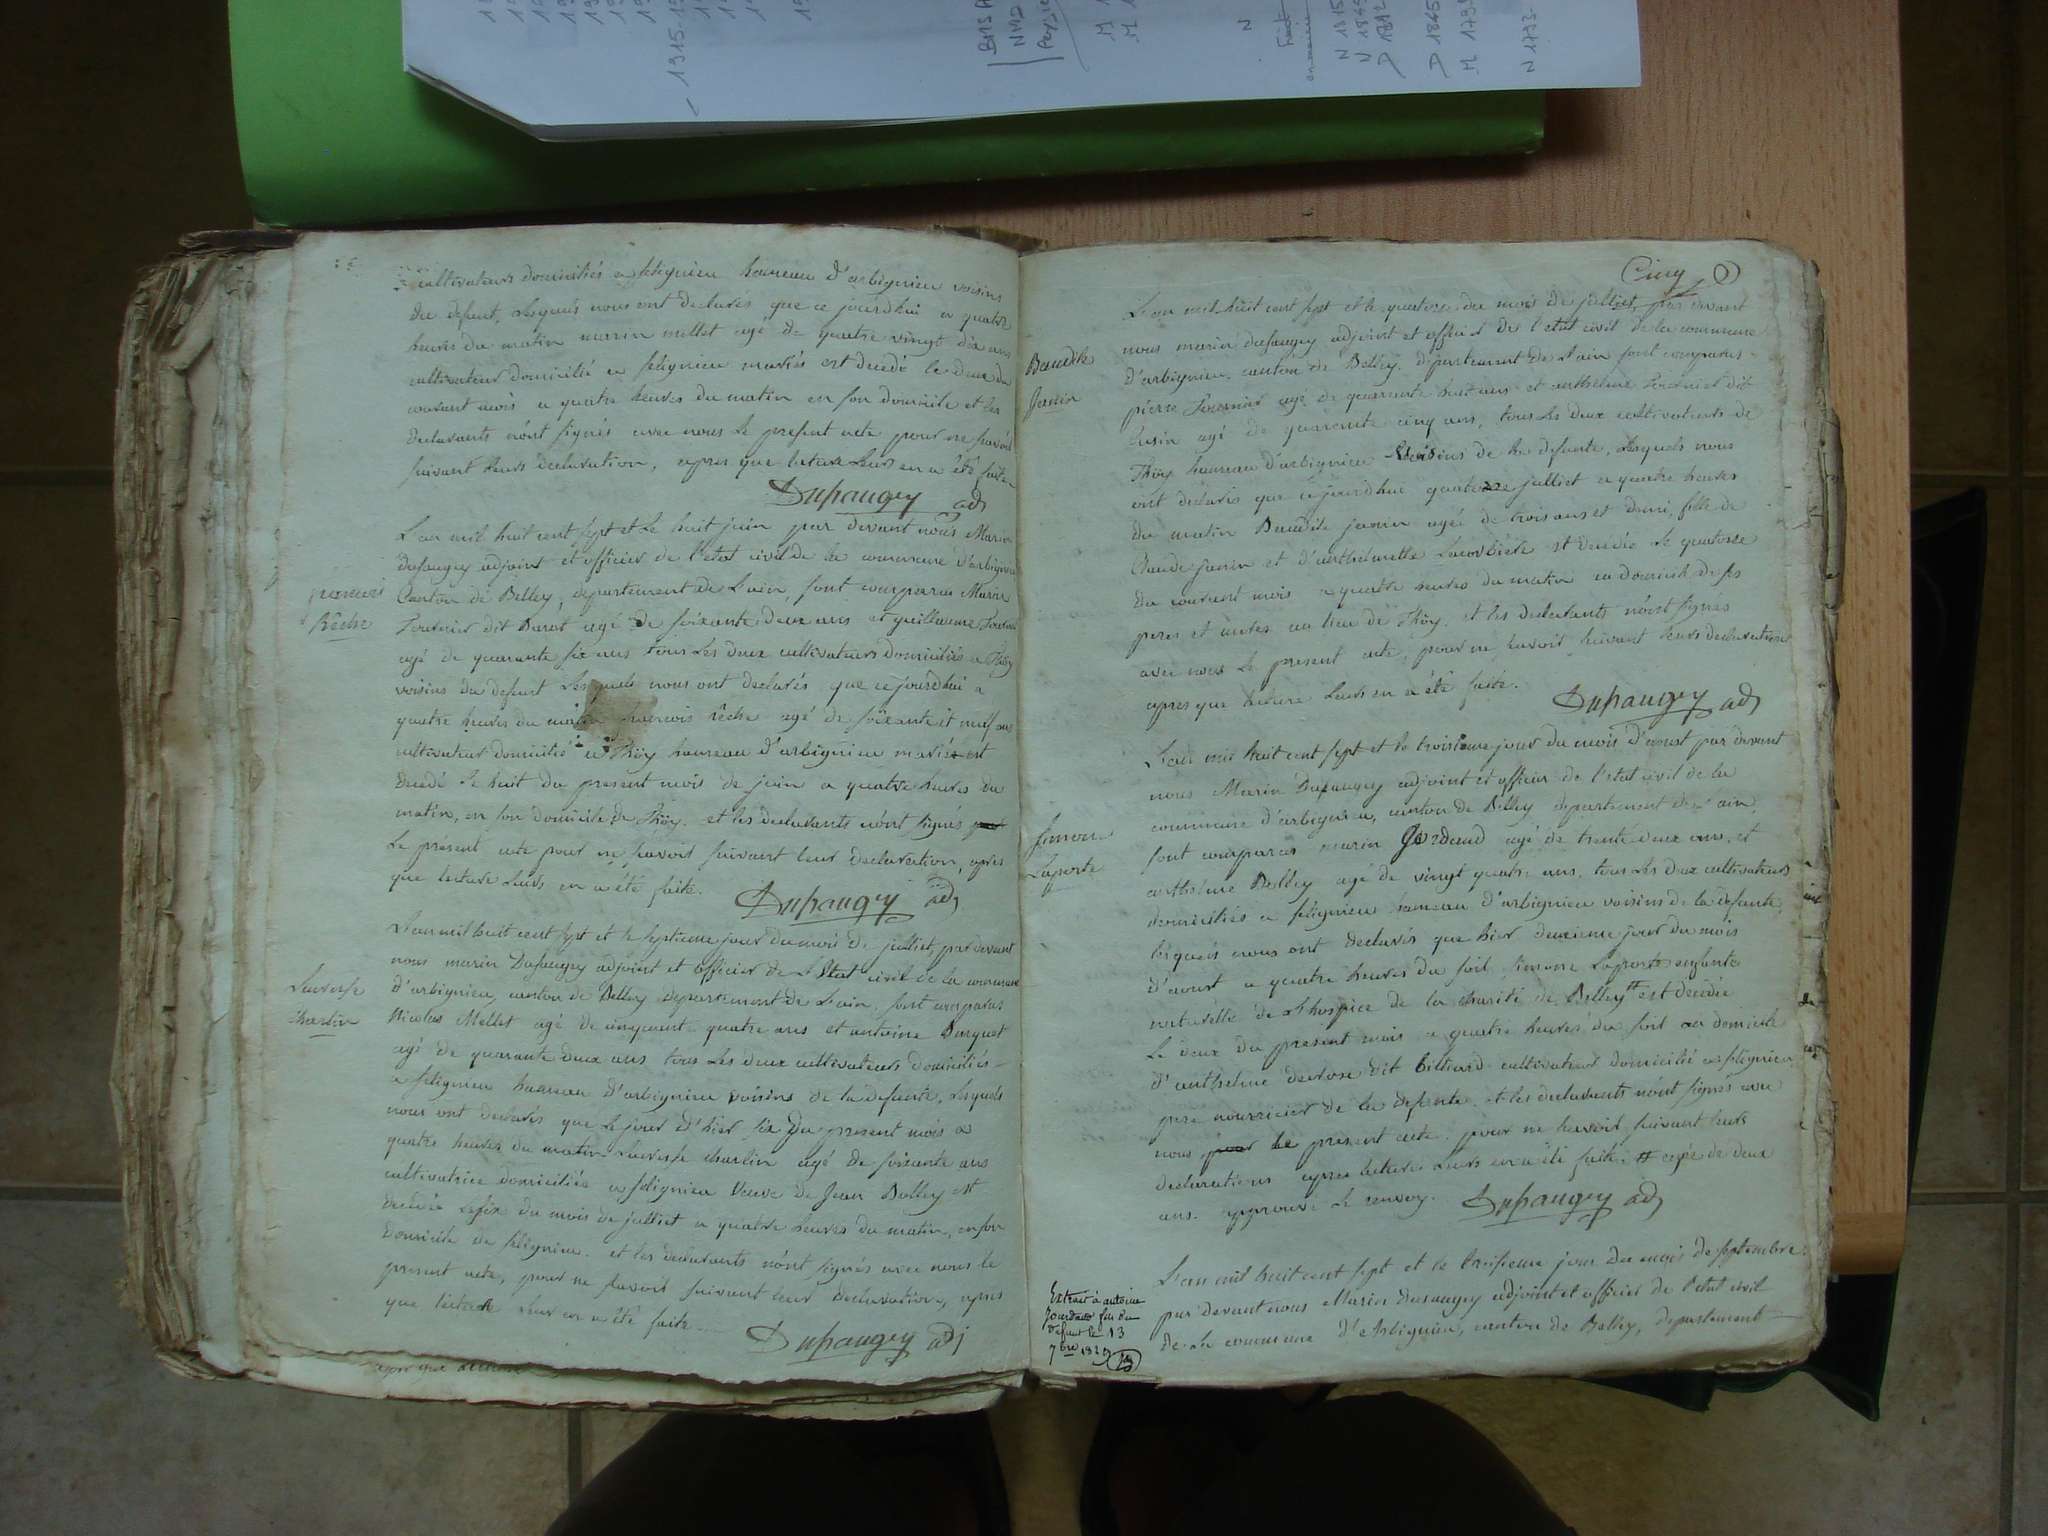 cultivateurs domiciliés a felignieu hameau d'arbignieu voisins
du defunt, Lesquels nous ont declarés que ce jourdhui a quatre
heures du matin marin mellet agé de quatre vingt dix ans
cultivateur domicilié a felignieu mariés est decedé le deux du
courant mois a quatre heures du matin en son domicile et les
declarants n'ont signés avec nous le present acte pour ne savoir
suivant leurs declaration, apres que lecture leurs en a été faite
Dufaugey adj
francois
Rêche
L'an mil huit cent sept et le huit juin par devant nous Marin
dufaugey adjoint et officier de l'etat civil de la commune d'arbignieu
Canton de Belley, departement de L'ain, sont comparus Marin
Fournier dit Barat agé de soixante deux ans et guillaume Fournier
agé de quarante six ans tous Les deux cultivateurs domiciliés a Thöy
voisins du defunt Lesquels nous ont declarés que cejourdhui a
quatre heures du matin francois rêche agé de soixante et neuf ans
cultivateur domicilié a Thöy hameau d'arbignieu mariés est
decedé le huit du present mois de juin a quatre heures du
matin, en son domicile de Thöy. et les declarants n'ont signés
Le présent acte pour ne savoir suivant leur declaration, apres
que lecture Leurs en a été faite. Dufaugey adj
charlin
L'an mil huit cent sept et le septieme jour du mois de julliet, par devant
nous marin Dufaugey adjoint et officier de L'Etat civil de la commune
d'arbignieu, canton de Belley departement de L'ain, sont comparus
Nicolas Mellet agé de cinquante quatre ans et antoine Burquet
agé de quarante deux ans tous Les deux cultivateurs domiciliés
a felignieu hameau d'arbignieu voisins de la defunte, Lesquels
nous ont declarés que Le jour d'hier six Du present mois a
quatre heures du matin charlin agé de soixante ans
cultivatrice domiciliés a felignieu Veuve de Jean Belley est
decedée Le six du mois de julliet a quatre heures du matin, en son
domicile de felignieu. et les declarants n'ont signés avec nous le
present acte, pour ne savoir suivant leur declaration, apres
que lecture Leur en a été faite
Dufaugey adj
Cinq
Baudile
Janin
L'an mil huit cent sept et le quatorze du mois de julliet, par devant
nous marin dufaugey adjoint et officier de l'etat civil de la commune
d'arbignieu, canton de Belley, département de L'ain sont comparus
pierre Fournier agé de quarante huit ans et anthelme Fournier dit
agé de quarante cinq ans, tous Les deux cultivateurs de
Thöy hameau d'arbignieu voisins de la defunte, Lesquels nous
ont declarés que cejourdhui quatorze julliet a quatre heures
du matin Baudile janin agée de trois ans et demi, fille de
Claude janin et d'anthelmette est decedée Le quatorze
du courant mois a quatre heures du matin au domicile de ses
peres et meres au lieu de Thöy. et les declarants n'ont signés
avec nous Le present acte, pour ne savoir, suivant leurs declarations
apres que lecture Leurs en a été faite.
Dufaugey adj
Simone
Laporte
L'an mil huit cent sept et le troisieme jour du mois d'aoust par devant
nous Marin Dufaugey adjoint et officier de l'etat civil de la
commune d'arbignieu, canton de Belley departement de L'ain,
sont comparus marin Jordand agé de trente deux ans, et
anthelme Belley agé de vingt quatre ans, tous Les deux cultivateurs
domiciliés a felignieu hameau d'arbignieu voisins de la defunte,
lesquels nous ont declarés que hier deuxieme jour du mois
d'aoust a quatre heures du soir, simone Laporte enfante
naturelle de L'hospice de la charité de Belley # est decedée
Le deux du present mois a quatre heures du soir au domicile
d'anthelme dit billiard cultivateur domicilié a felignieu
pere nourricier de la defunte. et les declarants n'ont signés avec
nous pour le present acte. pour ne savoir suivant leurs
declarations apres lecture Leurs en a été faite. # agée de deux
ans. approuvé le renvoy. Dufaugey adj
L'an mil huit cent sept et le treisieme jour du mois de septembre
par devant nous Marin Dufaugey adjoint et officier de l'etat civil
de la commune d'Arbignieu, canton de Belley, departement
Extrait à antoine
Jourdand fils du
defunt le 13
7bre 1827